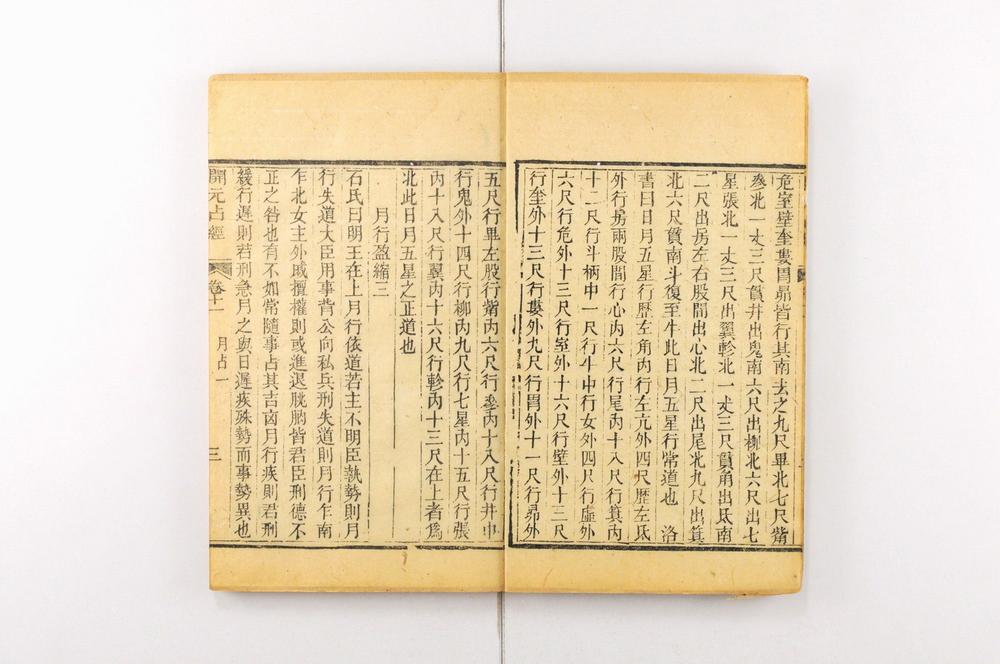 危室壁奎婁胃昴皆行其南去之九尺畢北七尺觜
參北一丈三尺貫井出鬼南六尺出柳北六尺出七
星張北一丈三尺出翼軫北一丈三尺貫角出氐南
二尺出房左右股間出心北二尺出尾北九尺出箕
北六尺貫南斗復至牛此日月五星行常道也 洛
書曰日月五星行歷左角內行左亢外四尺歷左氐
外行房兩股間行心內六尺行尾內十八尺行箕內
十二尺行斗柄中一尺行牛中行女外四尺行虛外
六尺行危外十三尺行室外十六尺行壁外十三尺
行奎外十三尺行婁外九尺行胃外十一尺行昴外
五尺行畢左股行觜內六尺行參內十八尺行井中
行鬼外十四尺行柳內九尺行七星內十五尺行張
內十八尺行翼內十六尺行軫內十三尺在上者為
北此日月五星之正道也
月行盈縮三
石氏曰明王在上月行依道若主不明臣執勢則月
行失道大臣用事背公向私兵刑失道則月行乍南
乍北女主外戚擅權則或進退朓朒皆君臣刑德不
正之咎也有不如常隨事占其吉凶月行疾則君刑
緩行遲則君刑急月之與日遲疾殊勢而事勢異也
開元占經 卷十一 月占一 三